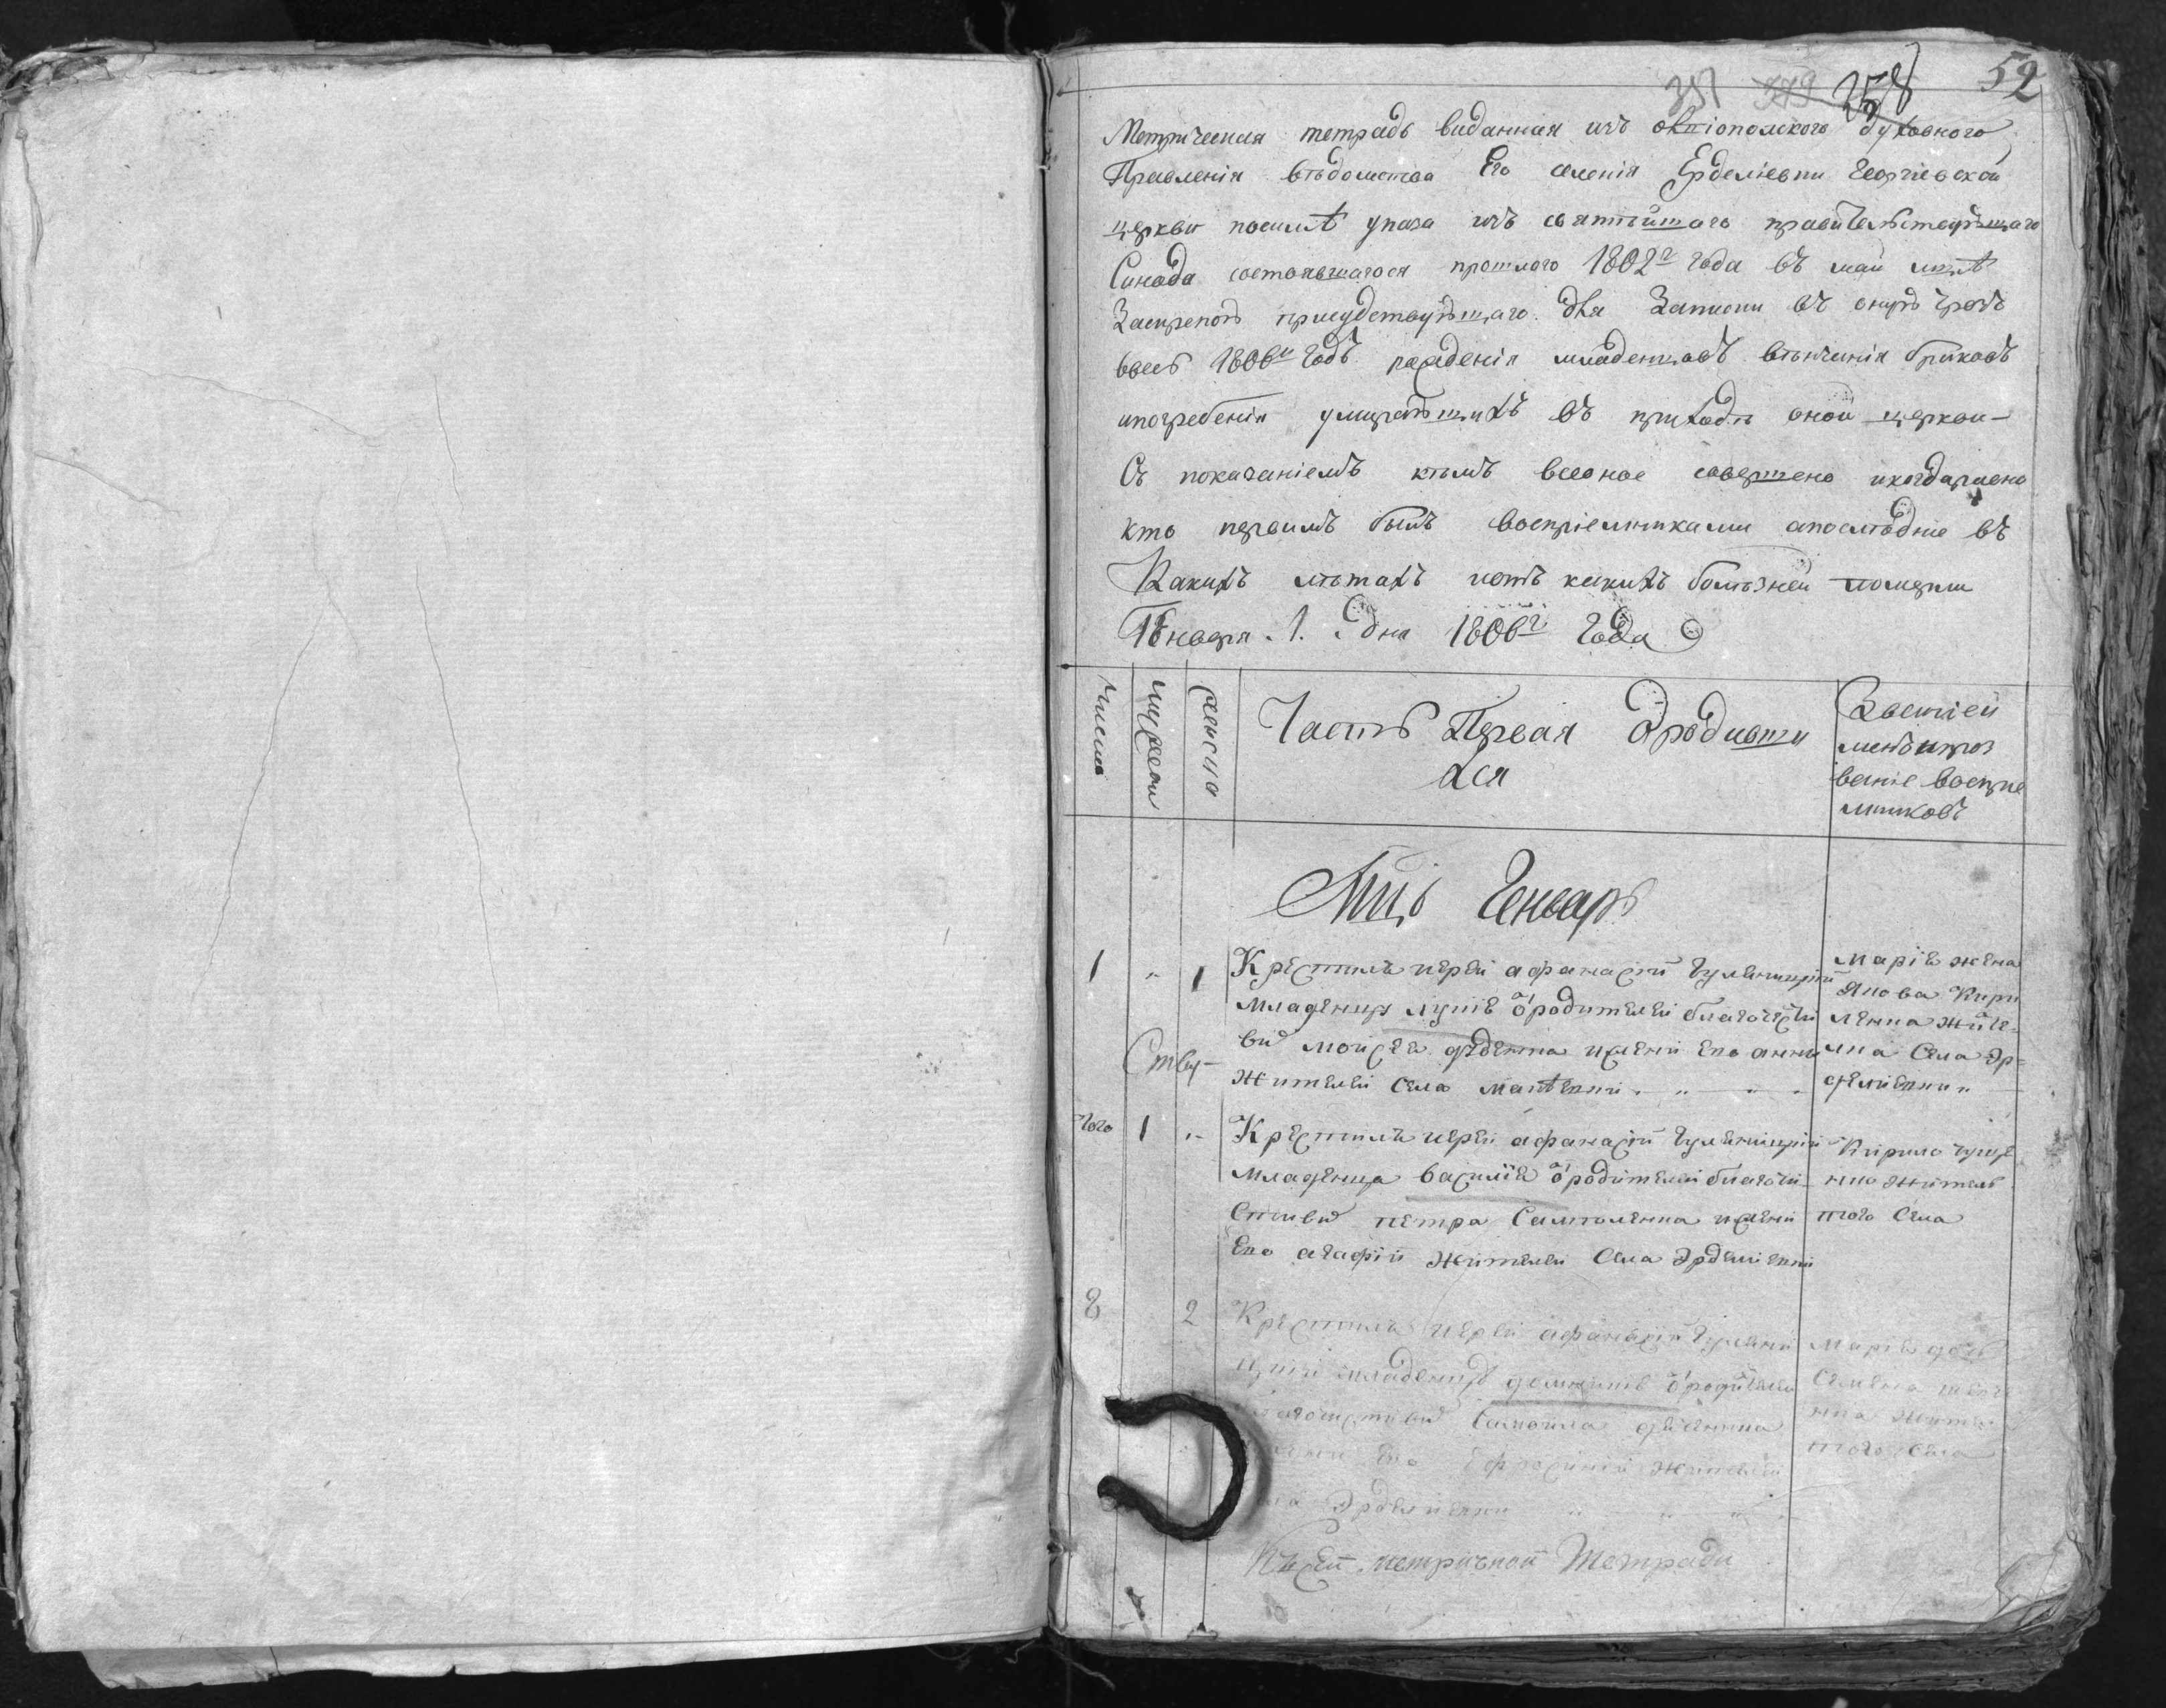 351 379 258 52
Метрическая тетрадь виданная изъ олвіополского духовного
Правленія вѣдомства Его селенія Ерделіевки Георгіевской
церкви посилѣ указа изъ святѣйшаго правительствующаго
Синода состоявшагося прошлого 1802г года въ маи мцѣ
Заскрепою присудствующаго для Записки въ оную чрезъ
ввесь 1806й годъ рожденія младенцовъ вѣнчанія браковъ
ипогребенія умирающихъ въ приходѣ оной церкви
Съ показаніемъ кѣмъ всеоное совершено икогдаравно
кто первимъ былъ восприемниками апослѣдніе въ
Какихъ лѣтахъ иотъ какихъ болѣзней померли
Генваря 1. дня 1806г года
Число
мужеска
женска
Часть Первая Ородивши
хся
Званіей
менъипроз
ваніе восприе
мниковъ
Мцъ Генварь
1 " 1 Крестилъ иерей афанасій
младенца ѿродителей благочести
вих Моисея исжени его анни
жителей Села
Марія жена
Якова Кири
ленка жите
лка Села Эр
делиевки
Ству
того 1 " Крестилъ иерей афанасій
младенца василія ѿродителей благоче
стивих петра Самойленка ижени
его агафіи жителей Села Эрделиевки
Кирило
нко житель
того Села
8 2 Крестилъ иерей афанасій
младенца ѿродителей
благочестивих Самойла
жени его Ефросиніи жителей
Села Эрделиевки
Марія дочь
Семена
нка жител
того Села
Къ сей метричной Тетради